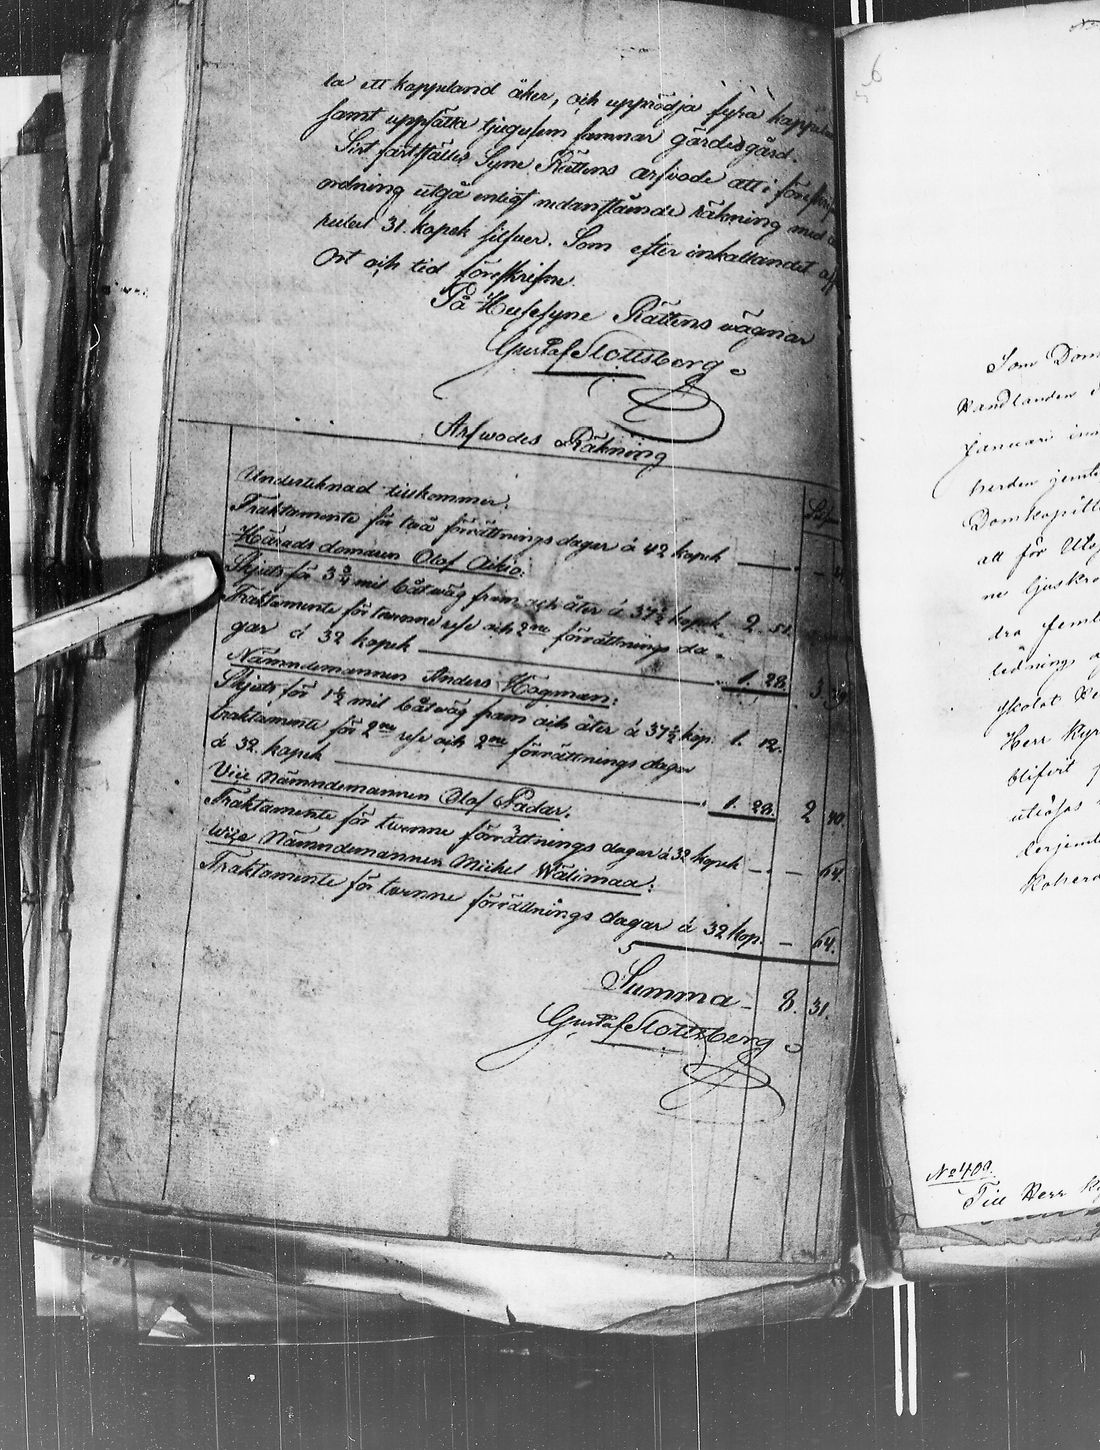 la ett kappeland åker, och upprödja fyra
samt uppsätta tjugufem famnar gärdesgård.
Sist fastställes Syne Rättens arfvode att i
ordning utgå enligt nedanstående räkning med
rubel 31. kopek silfver. Som efter inkallandet af
Ort och tid föreskrifne.
På Husesyne Rättens wägnar
Gustaf Slottsberg
Arfwodes Räkning
Undertecknad tillkommer:
Traktamente för två förrättnings dagar á 42 kopek
Härads domaren Olof Aikio:
Skjuts för 3 3/4 mil båtwäg fram och åter á 37½ kopek 2. 51.
Traktamente för twenne rese och 2ne förrättnings da-
gar á 32 kopek 1. 28. 3. 79
Nämndemannen Anders Högman:
Skjuts för 1½ mil båtwäg fram och åter á 37½ kop. 1. 12.
traktamente för 2ne rese och 2ne förrättnings dagar
á 32 kopek 1. 28. 2 40
Vice Nämndemannen Olof Radar.
Traktamente för twenne förrättnings dagar á 32 kopek — 64
Wice Nämndemannen Michel Wälimaa:
Traktamente för twenne förrättnings dagar á 32 kop. — 64.
Summa 8. 31.
Gustaf Slottsberg
6
Som Dom
Januari
Domkapitl
att för
ne
dra
lednings
Herr
blifvit
utlösas
derjemte
No 400.
Till Herr